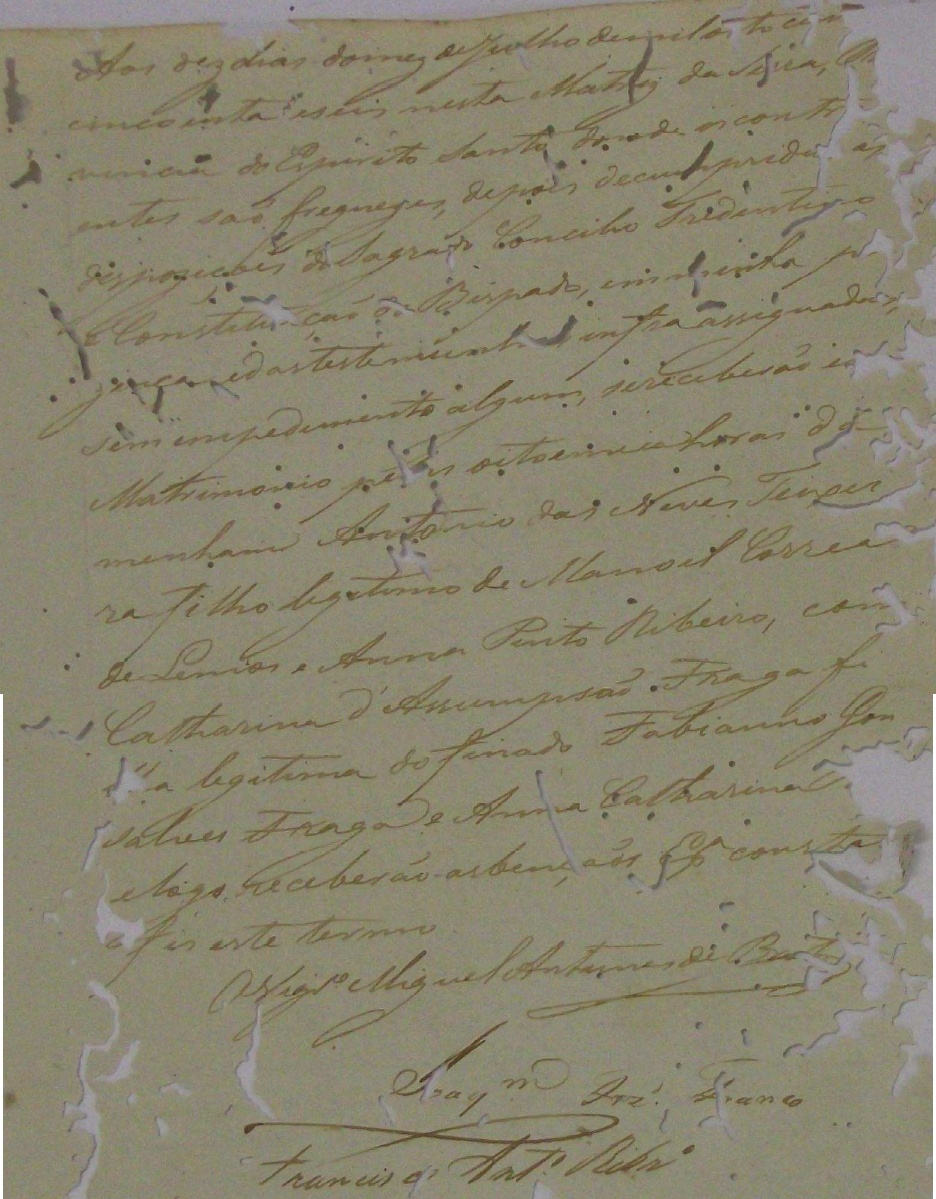 Aos dez dias do mez de Julho de mil oito cen
cincoenta e seis nesta Matriz da Serra, Pr
vincia do Espirito Santo donde os contra
entes saõ freguezes, depois de cumprida as
dispoziçoẽs do Sagrado Concilio Tredentino
e Constituiçaõ do Bispado, em minha pr
zença, e das testemunhas infra assignadas,
sem empedimento algum, se receberaõ em
Matrimonio pelas oito e meia horas da
menham Antonio das Neves Teixei
ra filho legitimo de Manoel Correa
de Lemos e Anna Pinto Ribeiro, com
Catharina d'Assumpsaõ Fraga fi
lha legitima do finado Fabianno Gon
salves Fraga e Anna Catharina
e logo receberaõ as bençaõs Epª consta
fis este termo
O Vigrº Miguel Antunes de Brito
Joaqm José Franco
Francisco Antº Ribrº